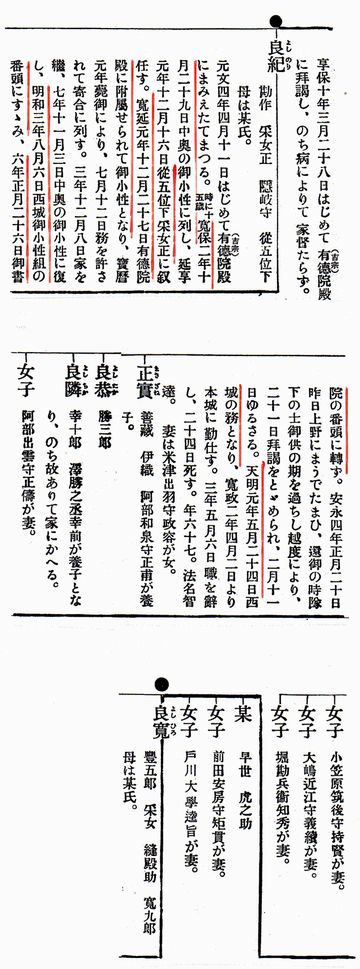 享保十年三月二十八日はじめて有德院殿
(吉宗)
に拜謁し、のち病によりて家督たらず。
良紀
よしのり
勘作 采女正 隱岐守 從五位下
母は某氏。
元文四年四月十一日はじめて有德院殿
(吉宗)
にまみえたてまつる。時に十五歲 寬保二年十
月二十九日中奥の御小性に列し、延享
元年十二月十六日從五位下采女正に叙
任す。寬延元年十二月二十七日有德院
殿に附屬せられて御小性となり、寶曆
元年薨御により、七月十二日務を許さ
れて寄合に列す。三年十二月八日家を
繼、七年十一月三日中奥の御小性に復
し、明和三年八月六日西城御小性組の
番頭にすゝみ、六年正月二十六日御書
院の番頭に轉ず。安永四年正月二十日
昨日上野にまうでたまひ、還御の時隊
下の士御供の期を過ちし越度により、
二十一日拜謁をとゞめられ、二月十一
日ゆるさる。天明元年五月二十四日西
城の務となり、寬政二年四月二日より
本城に勤仕す。三年五月六日職を辭
し、二十四日死す。年六十七。法名智
達。 妻は米津出羽守政容が女。
正實
善藏 伊織 阿部和泉守正甫が養
子。
良恭
勝三郎
良隣
幸十郎 澤勝之丞幸前が養子とな
り、のち故ありて家にかへる。
女子
阿部出雲守正儔が妻。
女子 小笠原筑後守持賢が妻。
女子 大嶋近江守義績が妻。
女子 堀勘兵衞知秀が妻。
某 早世 虎之助
女子 前田安房守矩貫が妻。
女子 戶川大學逵旨が妻。
良寬
よしひろ
豐五郎 采女 縫殿助 寬九郎
母は某氏。